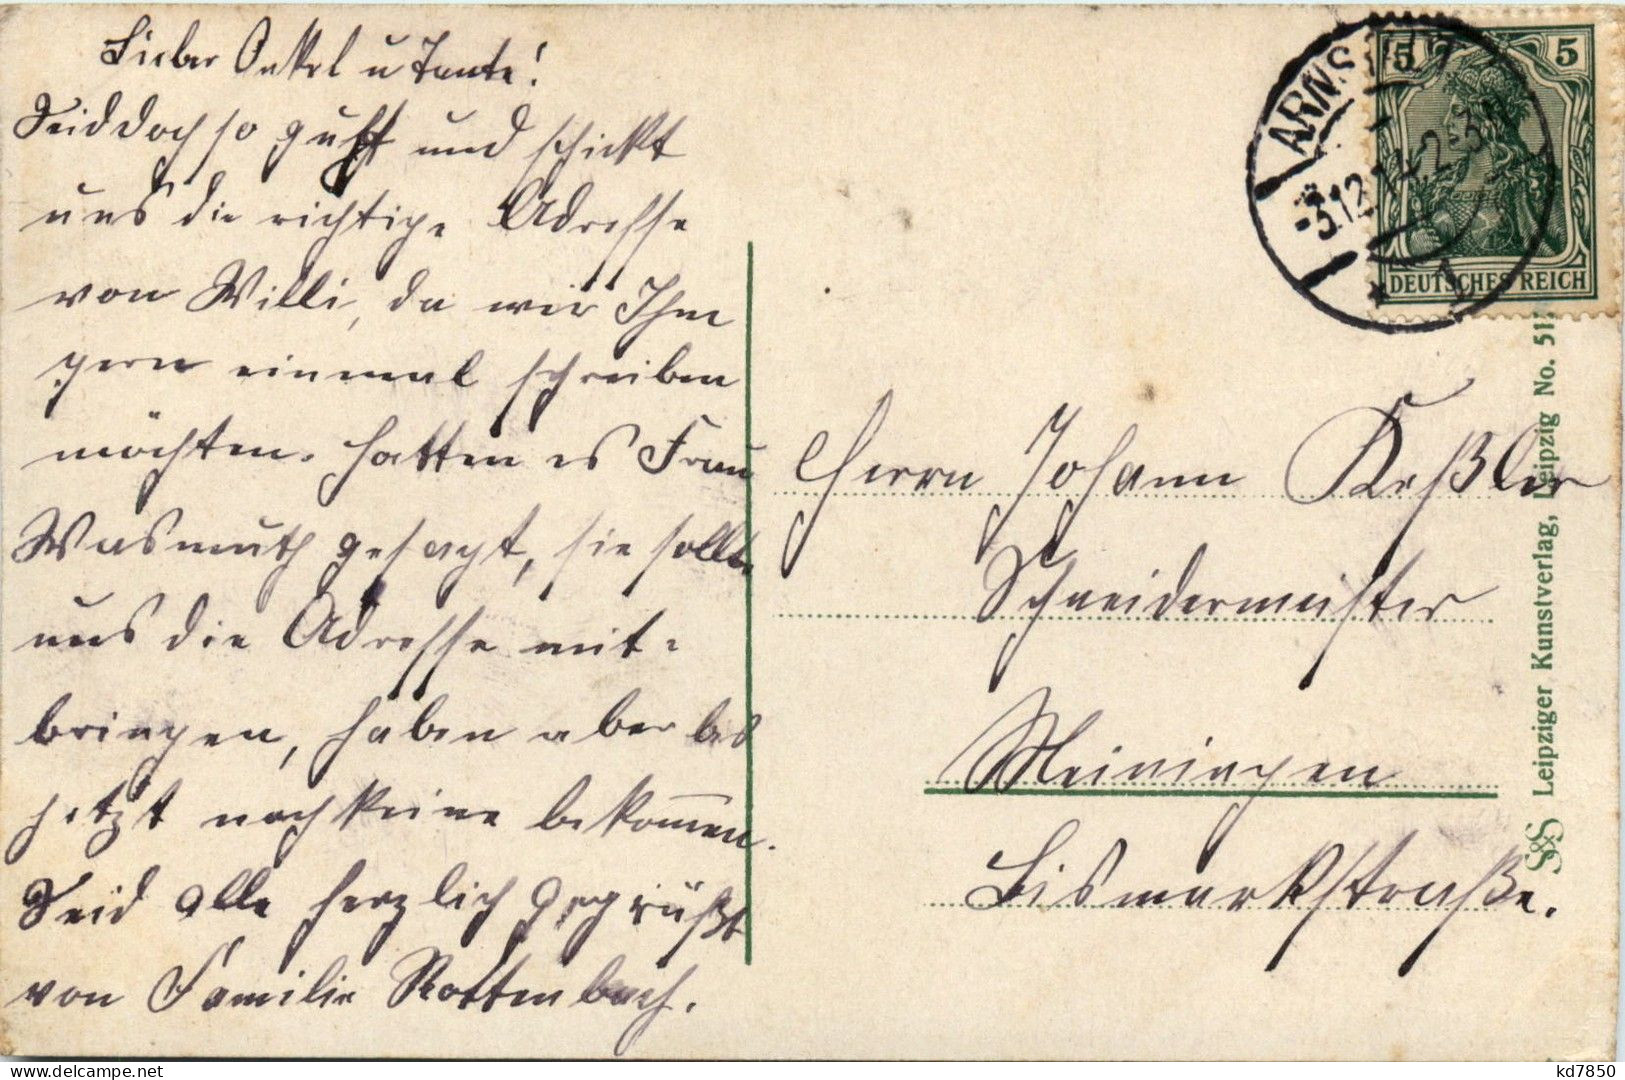 Lieber Onkel u Tante!
Seid doch so gut und schickt
uns die richtige Adresse
von Willi, da wir Ihm
gern einmal schreiben
möchten. Hatten es Frau
Wasmuth gesagt, sie sollte
uns die Adresse mit-
bringen, haben aber bis
jetzt noch keine bekommen.
Seid alle herzlich gegrüßt
von Familie Rottenbach.
ARNSTADT
-3.12.14.2-3N
* 1
5 5
DEUTSCHES REICH
Herrn Johann Keßler
Schneidermeister
Meiningen
Bismarkstraße.
S&S Leipziger Kunstverlag, Leipzig No. 511
delcampe.net
kd7850